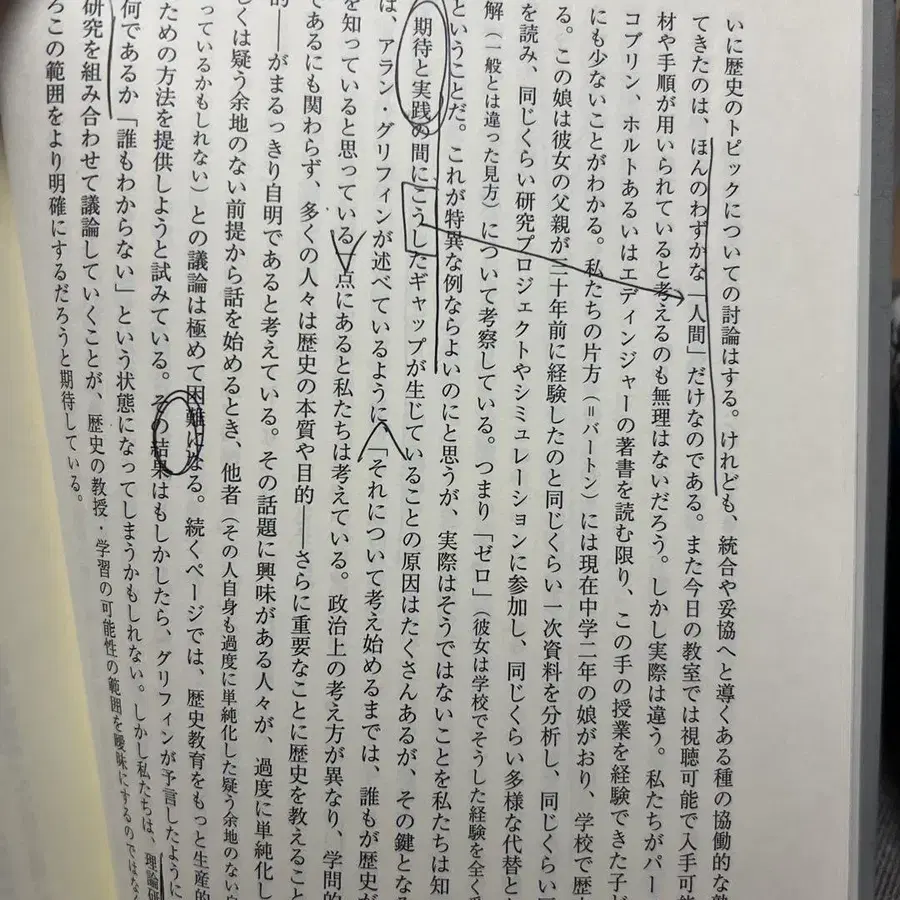 いに歴史のトピックについての討論はする。けれども、統合や妥協へと導くある種の協働的な
てきたのは、ほんのわずかな「人間」だけなのである。また今日の教室では視聴可能で入手可能
材や手順が用いられていると考えるのも無理はないだろう。しかし実際は違う。私たちがパー
コブリン、ホルトあるいはエディンジャーの著書を読む限り、この手の授業を経験できた子ど
にも少ないことがわかる。私たちの片方（＝バートン）には現在中学二年の娘がおり、学校で歴
る。この娘は彼女の父親が三十年前に経験したのと同じくらい一次資料を分析し、同じくらい
を読み、同じくらい研究プロジェクトやシミュレーションに参加し、同じくらい多様な代替と
解（一般とは違った見方）について考察している。つまり「ゼロ」（彼女は学校でそうした経験を全く
ということだ。これが特異な例ならよいのにと思うが、実際はそうではないことを私たちは知
期待と実践の間にこうしたギャップが生じていることの原因はたくさんあるが、その鍵となる
は、アラン・グリフィンが述べているように「それについて考え始めるまでは、誰もが歴史が
を知っていると思っている」点にあると私たちは考えている。政治上の考え方が異なり、学問的
であるにも関わらず、多くの人々は歴史の本質や目的――さらに重要なことに歴史を教えること
的――がまるっきり自明であると考えている。その話題に興味がある人々が、過度に単純化し
しくは疑う余地のない前提から話を始めるとき、他者（その人自身も過度に単純化した疑う余地のない
っているかもしれない）との議論は極めて困難になる。続くページでは、歴史教育をもっと生産的
ための方法を提供しようと試みている。その結果はもしかしたら、グリフィンが予言したように
何であるか「誰もわからない」という状態になってしまうかもしれない。しかし私たちは、理論研
研究を組み合わせて議論していくことが、歴史の教授・学習の可能性の範囲を曖昧にするのではなく
ろこの範囲をより明確にするだろうと期待している。